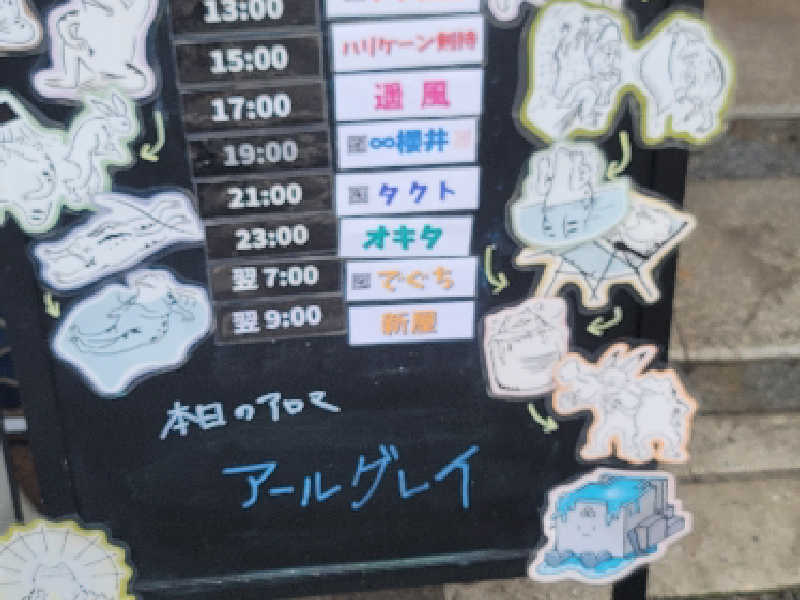 13:00
15:00 ハリケーン剣持
17:00
19:00 ∞櫻井
21:00 タクト
23:00 オキタ
翌 7:00 でぐち
翌 9:00 新屋
本日のアロマ
アールグレイ